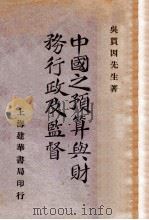 吳貫因先生著
中國之預算與財
務行政及監督
上海建華書局印行